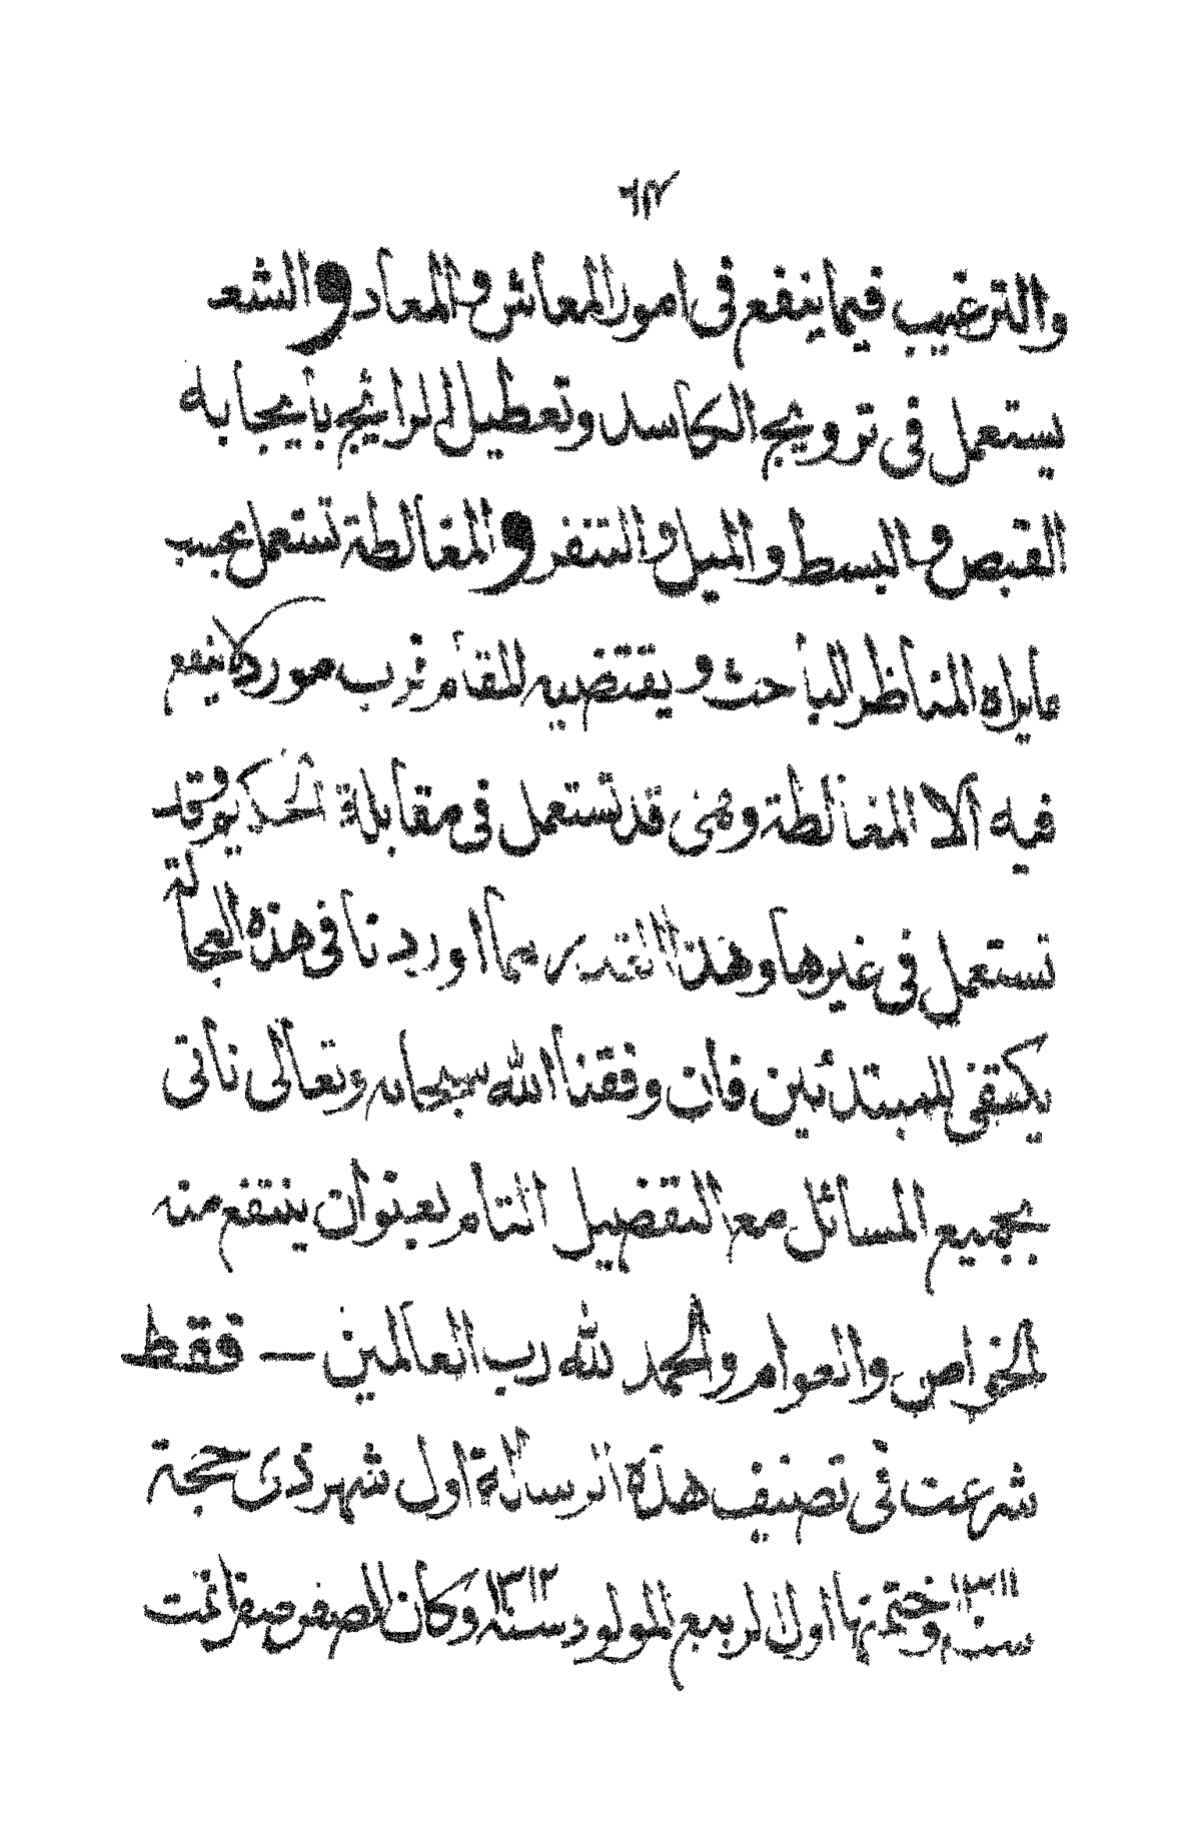 ٦١٢
والترغيب فيما ينفع فى امور المعاش والمعاد والشعر
يستعمل فى ترويج الكاسد وتعطيل الرائج بايجابه
القبض والبسط والميل والتنفر والمغالطة تستعمل بحسب
مايراه المناظر الباحث ويقتضيه للمقام فرب مورد لا ينفع
فيه الا المغالطة وهى قد تستعمل فى مقابلة وقد
تستعمل فى غيرها وهذا القدر مما اوردنا فى هذه العجالة
يكتفى للمبتدئين فان وفقنا الله سبحانه وتعالى ناتى
بجميع المسائل مع التفصيل التام بعنوان ينتفع منه
الخواص والعوام والحمد لله رب العالمين — فقط
شرعت فى تصنيف هذه الرسالة اول شهر ذى حجة
سنه ١٣١١ وختمتها اول ربيع المولود سنه ١٣١٢ وكان الصفر صفرا تمت